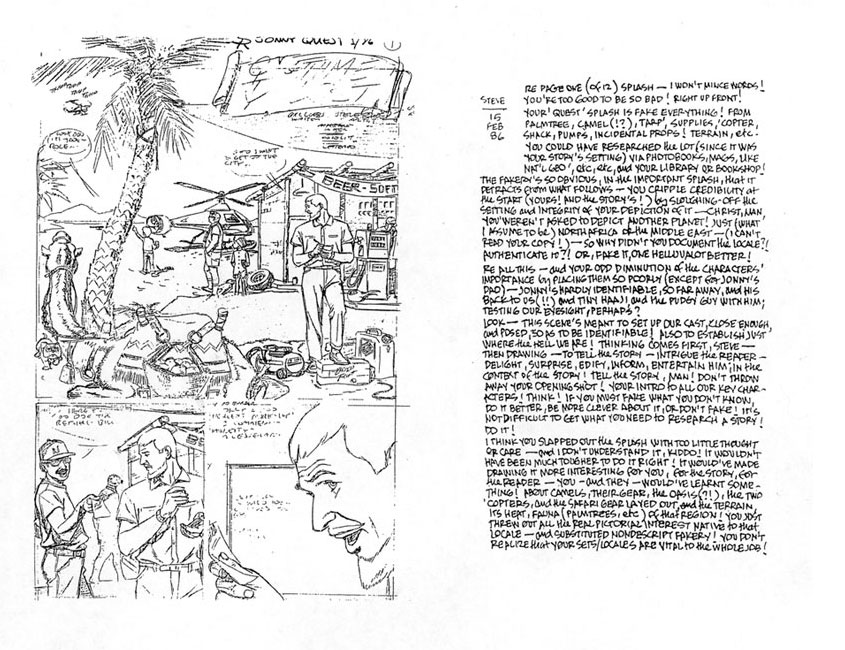 JONNY QUEST 2/86 1
BEER-SOFT
STEVE
15
FEB
86
RE PAGE ONE (OF 12) SPLASH — I WON'T MINCE WORDS!
YOU'RE TOO GOOD TO BE SO BAD! RIGHT UP FRONT!
YOUR 'QUEST' SPLASH IS FAKE EVERYTHING! FROM
PALMTREE, CAMEL (!?), TARP, SUPPLIES, 'COPTER,
SHACK, PUMPS, INCIDENTAL PROPS! TERRAIN, etc.
YOU COULD HAVE RESEARCHED the LOT (SINCE IT WAS
YOUR STORY'S SETTING) VIA PHOTOBOOKS, MAGS, LIKE
NAT'L GEO', etc, etc, and YOUR LIBRARY OR BOOKSHOP!
THE FAKERY'S SO OBVIOUS, IN the IMPORTANT SPLASH, that IT
DETRACTS from WHAT FOLLOWS — YOU CRIPPLE CREDIBILITY at
the START (YOURS! AND the STORY'S!) by SLOUGHING-OFF the
SETTING and INTEGRITY of YOUR DEPICTION of IT — CHRIST, MAN,
YOU WEREN'T ASKED TO DEPICT ANOTHER PLANET! JUST (WHAT
I ASSUME to be) NORTH AFRICA or the MIDDLE EAST — (I CAN'T
READ YOUR COPY!) — SO WHY DIDN'T YOU DOCUMENT the LOCALE?!
AUTHENTICATE IT?! OR, FAKE IT, ONE HELLUVALOT BETTER!
RE ALL THIS — and YOUR ODD DIMINUTION of the CHARACTERS'
IMPORTANCE by PLACING THEM SO POORLY (EXCEPT for JONNY'S
DAD) — JONNY'S HARDLY IDENTIFIABLE, SO FAR AWAY, and HIS
BACK TO US (!!) and TINY HAAJI and the PUDGY GUY WITH HIM;
TESTING OUR EYESIGHT, PERHAPS?
LOOK — THIS SCENE'S MEANT TO SET UP OUR CAST, CLOSE ENOUGH,
and POSED, SO AS TO BE IDENTIFIABLE! ALSO TO ESTABLISH JUST
WHERE the HELL WE ARE! THINKING COMES FIRST, STEVE —
THEN DRAWING — TO TELL the STORY — INTRIGUE the READER —
DELIGHT, SURPRISE, EDIFY, INFORM, ENTERTAIN HIM; IN the
CONTEXT of the STORY! TELL the STORY, MAN! DON'T THROW
AWAY YOUR OPENING SHOT! YOUR INTRO to ALL OUR KEY CHAR-
ACTERS! THINK! IF YOU MUST FAKE WHAT YOU DON'T KNOW,
DO IT BETTER, BE MORE CLEVER ABOUT IT, OR DON'T FAKE! IT'S
NOT DIFFICULT TO GET WHAT YOU NEED TO RESEARCH A STORY!
DO IT!
I THINK YOU SLAPPED OUT the SPLASH WITH TOO LITTLE THOUGHT
OR CARE — and I DON'T UNDERSTAND IT, KIDDO! IT WOULDN'T
HAVE BEEN MUCH TOUGHER TO DO IT RIGHT! IT WOULD'VE MADE
DRAWING IT MORE INTERESTING for YOU, for the STORY, for
the READER — YOU - and THEY — WOULD'VE LEARNT SOME-
THING! ABOUT CAMELS, THEIR GEAR, the OASIS (?!), the TWO
'COPTERS, and the SAFARI GEAR LAYED OUT, and the TERRAIN,
ITS HEAT, FAUNA (PALMTREES, etc) of that REGION! YOU JUST
THREW OUT ALL the REAL PICTORIAL INTEREST NATIVE to that
LOCALE — and SUBSTITUTED NONDESCRIPT FAKERY! YOU DON'T
REALIZE that YOUR SETS/LOCALES ARE VITAL to the WHOLE JOB!